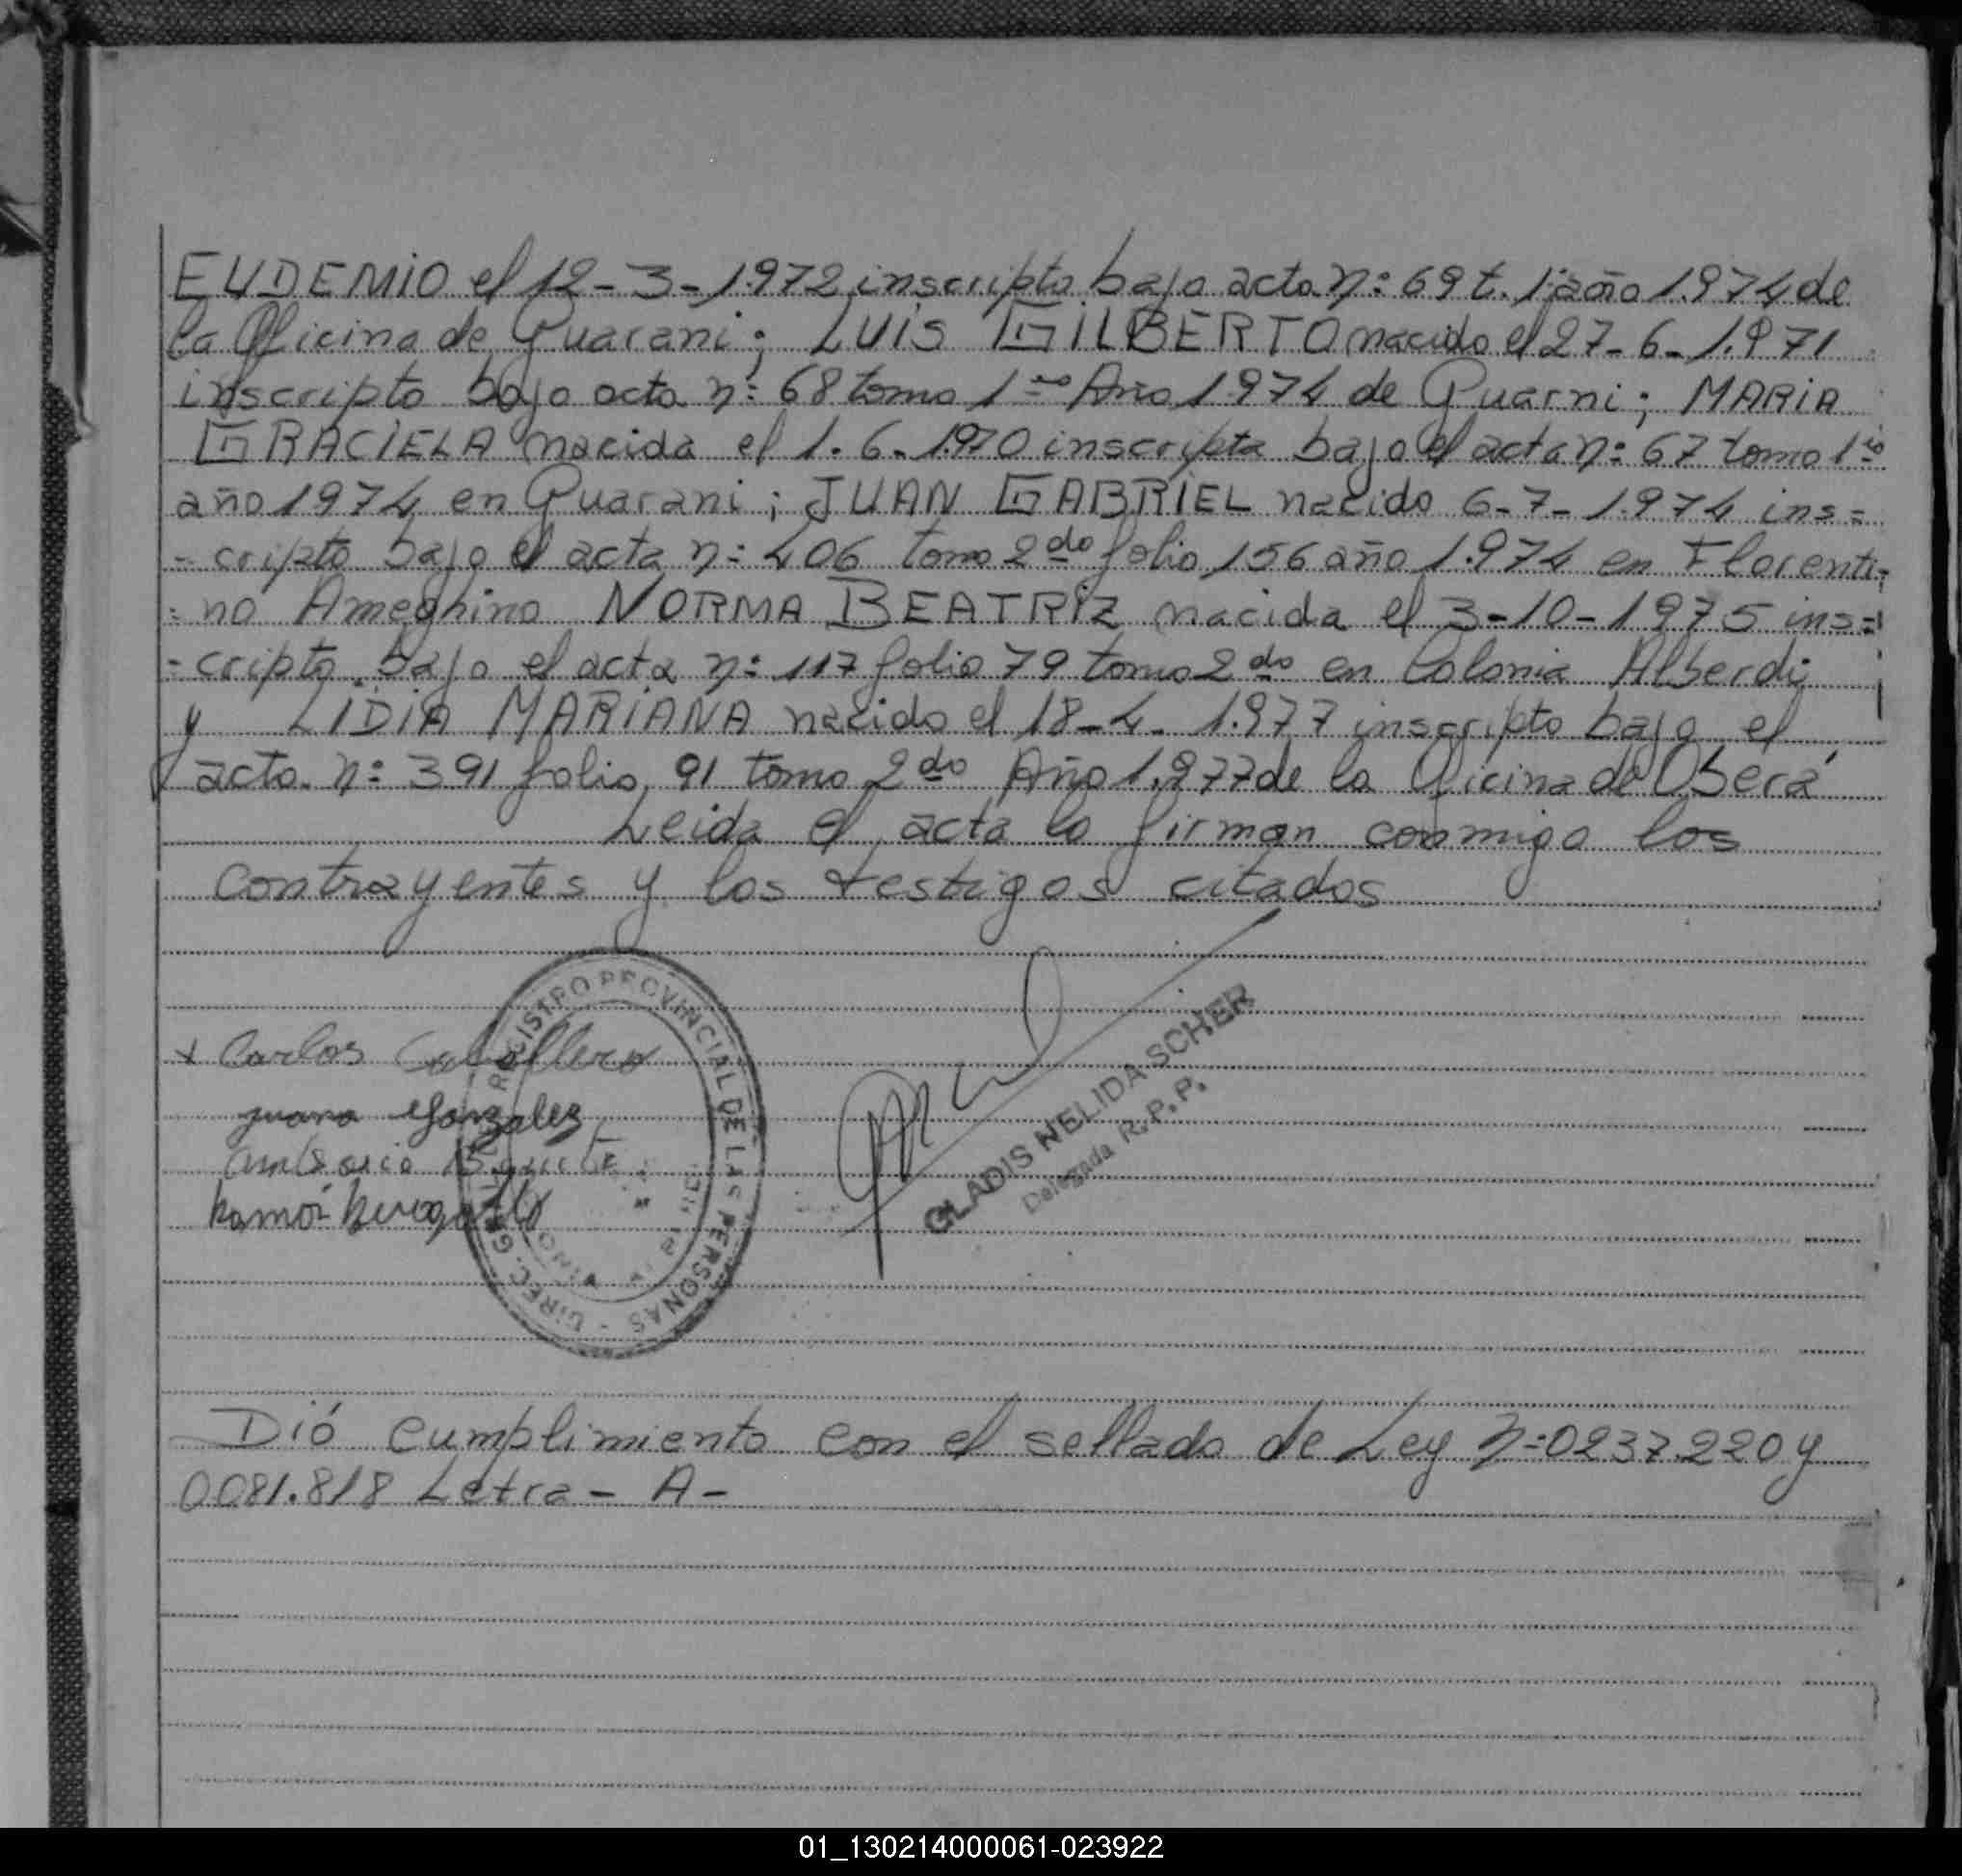 EUDEMIO el 12-3-1.972 inscripto bajo acta n: 69 t. 1: año 1.974 de
la Oficina de Guarani; LUIS GILBERTO nacido el 27-6-1.971
inscripto bajo acta n: 68 tomo 1ro Año 1974 de Guarni; MARIA
GRACIELA nacida el 1.6.1970 inscripta bajo el acta n: 67 tomo 1ro
año 1974 en Guarani; JUAN GABRIEL nacido 6-7-1.974 ins=
-cripto bajo el acta n: 406 tomo 2do folio 156 año 1.974 en Florenti-
=no Ameghino NORMA BEATRIZ nacida el 3-10-1975 ins=
-cripto bajo el acta n: 117 folio 79 tomo 2do en Colonia Alberdi
y LIDIA MARIANA nacido el 18-4-1.977 inscripto bajo el
acta n: 391 folio 91 tomo 2do Año 1.977 de la Oficina de Oberá
Leida el acta la firman conmigo los
contrayentes y los testigos citados
REGISTRO PROVINCIAL DE LAS PERSONAS - DIREC. GRAL.
x Carlos Caballero
juana Gonzalez
Ramon
GLADIS NELIDA SCHER
Delegada R.P.P.
Dió cumplimiento con el sellado de Ley n:0237.220 y
0081.818 Letra - A -
01_130214000061-023922